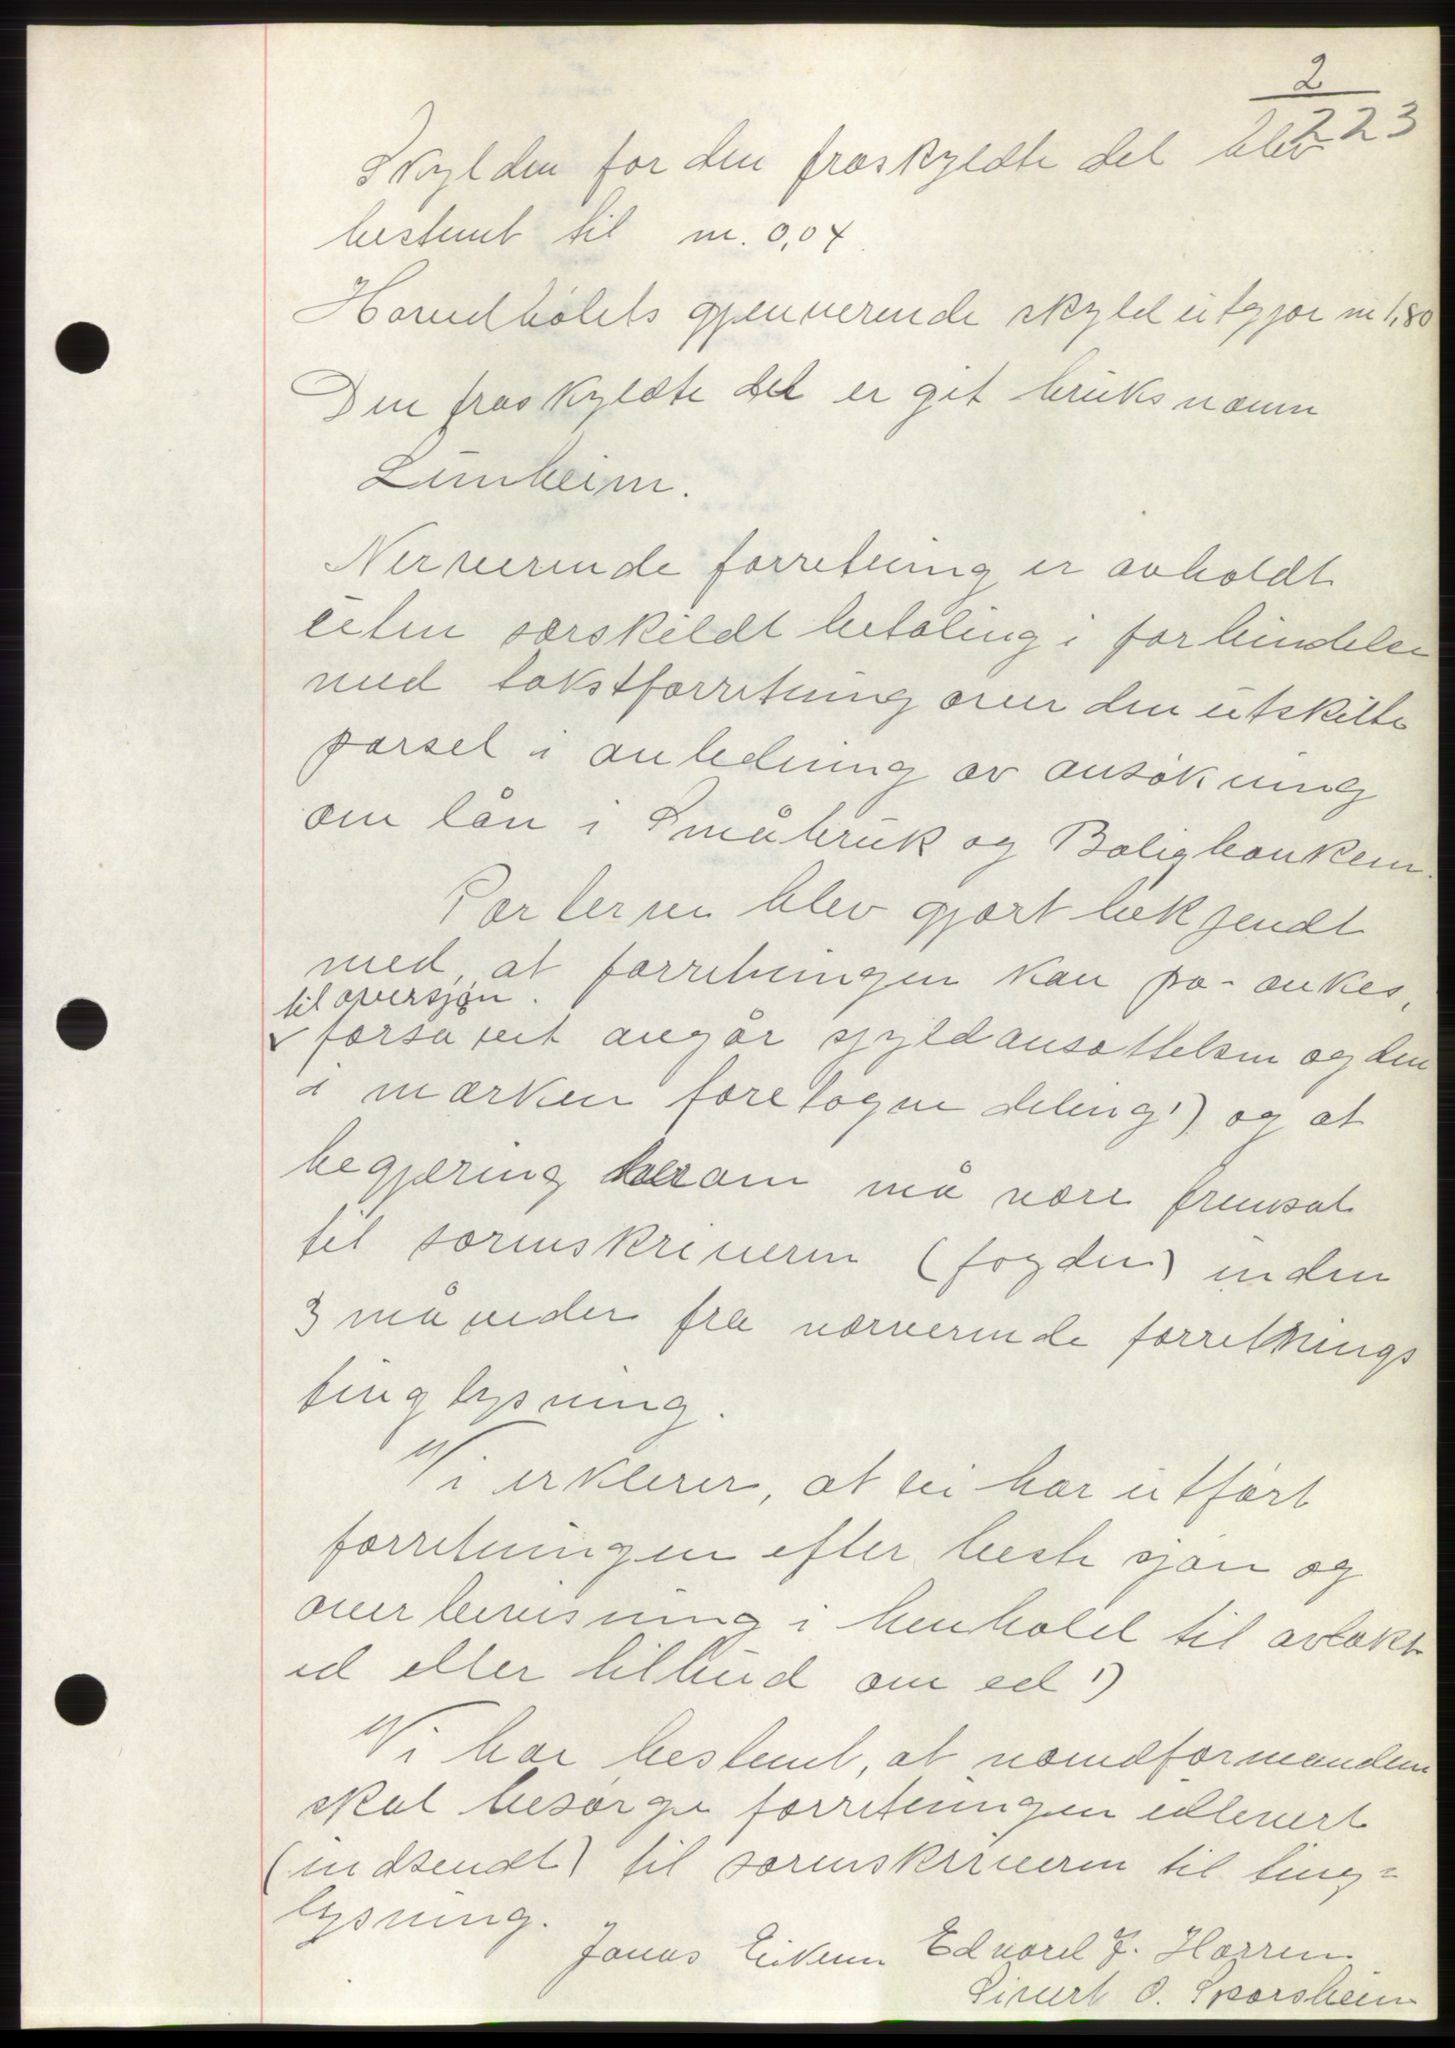 2
223
Skylden for den fraskyldte del blev
bestemt til m. 0,04
Hovedbølets gjenverende skyld utgjør m 1,80
Den fraskyldte del er git bruksnavn
Lunheim.
Nerverende forretning er avholdt
uten særskildt betaling i forbindelse
med takstforretning over den utskilte
parsel i anledning av ansøkning
om lån i Småbruk og Boligbanken.
Parterne blev gjort bekjendt
med, at forretningen kan på-ankes,
til oversjøn.
✓ forsavit angår sjyldansættelsen og den
i marken foretagne deling 1) og at
begjæring herom må være fremsat
til sorenskriveren (fogden) inden
3 måneder fra nærverende forretnings
tinglysning.
Vi erklerer, at vi har utført
forretningen efter beste sjøn og
overbevisning i henhold til avlakt
ed eller tilbud om ed 1)
Vi har bestemt, at nævndformanden
skal besørge forretningen idlevert
(indsendt) til sorenskriveren til ting=
lysning.
Jonas Eiken Edvard J. Horren
Sivert O. Sporsheim